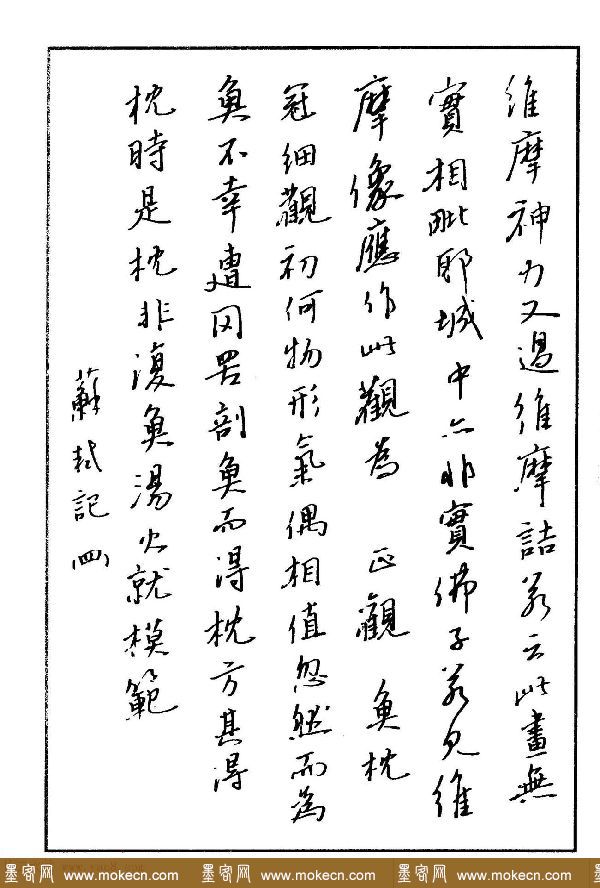 維摩神力又過維摩詰若云此畫無
實相毗耶城中亦非實佛子若見維
摩像應作此觀為 正觀 魚枕
冠細觀初何物形氣偶相值忽然而為
魚不幸遭网罟剖魚而得枕方其得
枕時是枕非復魚湯火就模範
蘇軾記(四)
墨客网 www.mokecn.com 墨客网 www.mokecn.com 墨客网 www.mokecn.com